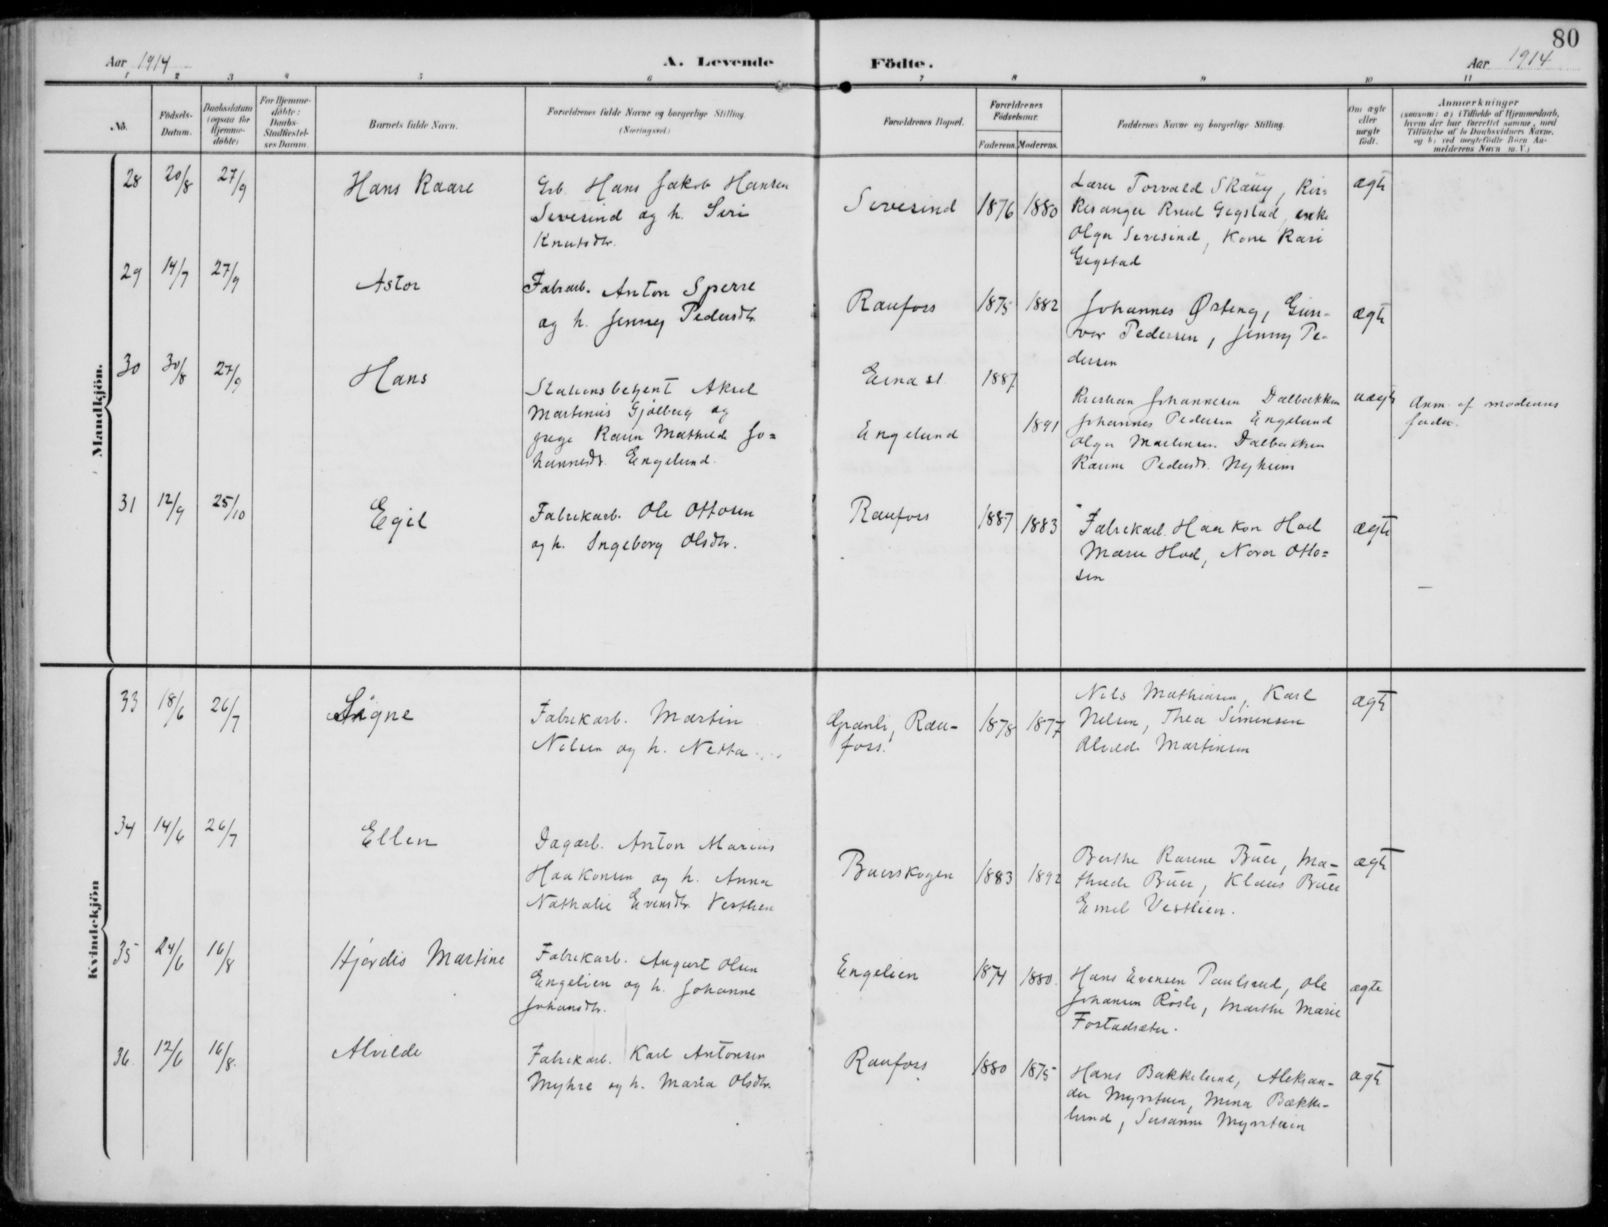 80
Aar 1914 A. Levende Födte. Aar 1914
1 2 3 4 5 6 7 8 9 10 11
No. Födsels-Datum. Daabsdatum (ogsaa for Hjemme-döbte) For Hjemme-döbte: Daabs-Stadfæstel-ses Datum. Barnets fulde Navn. Forældrenes fulde Navne og borgerlige Stilling. (Næringsvei.) Forældrenes Bopæl. Forældrenes Födselsaar. Faderens. Moderens. Faddernes Navne og borgerlige Stilling. Om ægte eller uægte födt. Anmærkninger
Mandkjön.
28 20/8 27/9 Hans Kaare
Grb. Hans Jakob Hansen
Sivesind og h. Siri
Knutsdtr.
Sivesind 1876 1880
Lærer Torvald Skaug, Kir=
kesanger Knut Gegstad, enke
Olga Sivesind, Kone Kari
Gegstad
ægte
29 14/7 27/9 Astor
Fabrarb. Anton Sperre
og h. Jenny Pedersdtr.
Raufoss 1875 1882
Johannes Østeng, Gun-
vor Pedersen, Jenny Pe-
dersen
ægte
30 30/8 27/9 Hans
Stationsbetjent Aksel
Martinius Gjølberg og
pige Karen Mathilde Jo=
hannesdtr. Engelund.
Eina st 1887
Engelund 1891
Kristian Johannesen Dalbakken
Johannes Pedersen Engelund
Olga Martinsen Dalbakken
Karine Pedersdtr. Nyheim
uægte
Anm. af moderens
fader.
31 12/9 25/10 Egil
Fabrikarb. Ole Ottosen
og h. Ingeborg Olsdtr.
Raufoss 1887 1883
Fabrikarb. Haakon Hoel
Marie Hoel, Nora Otto=
sen
ægte
Kvindekjön
33 18/6 26/7 Signe
Fabrikarb. Martin
Nilsen og h. Netta
Granli, Rau-
foss. 1878 1877
Nils Mathiasen, Karl
Nilsen, Thea Simensen
Alvilde Martinsen
ægte
34 14/6 26/7 Ellen
Dagarb. Anton Marius
Haakonsen og h. Anna
Nathalie Evensdtr. Vestlien
Buerskogen 1883 1892
Berthe Karine Buer, Ma-
thilde Buer, Klaus Buer
Emil Vestlien.
ægte
35 24/6 16/8 Hjørdis Martine
Fabrikarb. August Olsen
Engelien og h. Johanne
Johansdtr.
Engelien 1874 1880.
Hans Evensen Paulsrud, Ole
Johansen Røsli, Marthe Marie
Fostadsæter.
ægte
36. 12/6 16/8. Alvilde
Fabrikarb. Karl Antonsen
Myhre og h. Maria Olsdtr.
Raufoss 1880 1875
Hans Bakkelund, Aleksan-
der Myrstuen, Mina Bække-
lund, Susanne Myrstuen
ægte